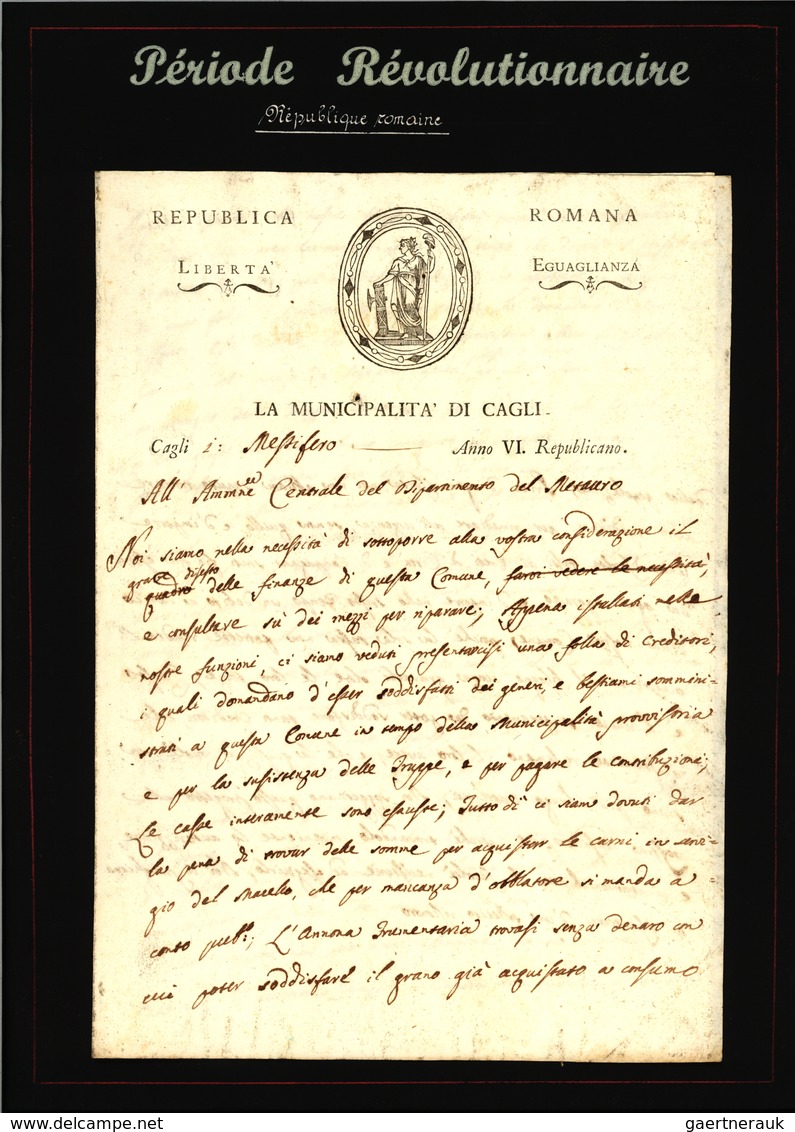 Période Révolutionnaire
République romaine
REPUBLICA ROMANA
LIBERTA' EGUAGLIANZA
LA MUNICIPALITA' DI CAGLI.
Cagli 1: Messifero Anno VI. Republicano.
All' Ammne Centrale del Dipartimento del Metauro
Noi siamo nella necessità di sottoporre alla vostra considerazione il
grave disesto
quadro delle finanze di questa Comune, farvi vedere la necessità,
e consultare sù dei mezzi per riparare; Appena istallati nelle
nostre funzioni, ci siamo veduti presentarcisi una folla di Creditori,
i quali domandano d'esser soddisfatti dei generi, e bestiami sommini-
strati a questa Comune in tempo della Municipalità provvisoria
e per la susistenza delle Truppe, e per pagare le contribuzioni;
Le casse interamente sono esauste; Tutto dì ci siam dovuti dar
la pena di trovar delle somme per acquistar le carni in servi-
gio del Macello, che per mancanza d'obblatore si manda a
conto pub.º; L'Annona Frumentaria trovasi senza denaro con
cui poter soddisfare il grano già acquistato a consumo
delcampe.net gaertnerauk